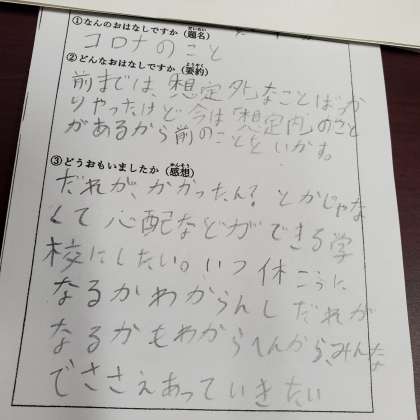 ①なんのおはなしですか（題名）
コロナのこと
②どんなおはなしですか（要約）
前までは、想定外なことばか
りやったけど今は想定内のこと
があるから前のことをいかす。
③どうおもいましたか（感想）
だれが、かかったん？とかじゃな
くて心配などができる学
校にしたい。いつ休こうに
なるかわからんしだれが
なるかもわからへんから、みんな
でささえあっていきたい